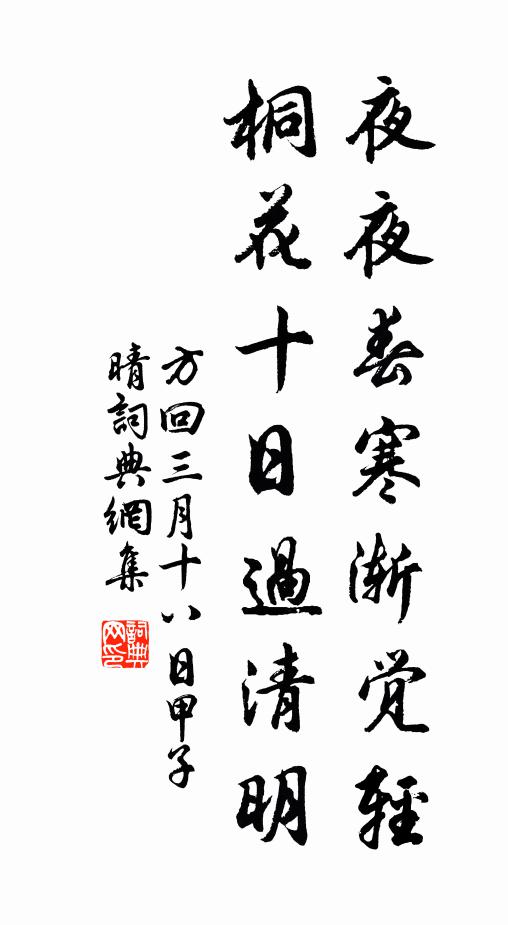 夜夜春寒渐觉輕
桐花十日過清明
方回三月十八日甲子
晴詞典網集
詞典网印